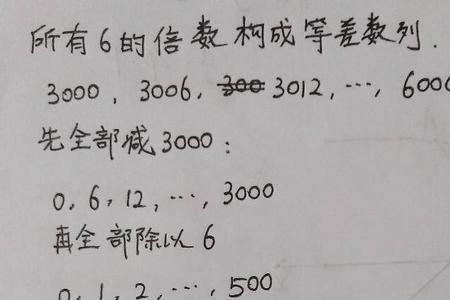 所有6的倍数构成等差数列.
3000, 3006, 300 3012, ⋯, 6000
先全部减3000:
0, 6, 12, ⋯, 3000
再全部除以6
0, 1, 2, ⋯, 500